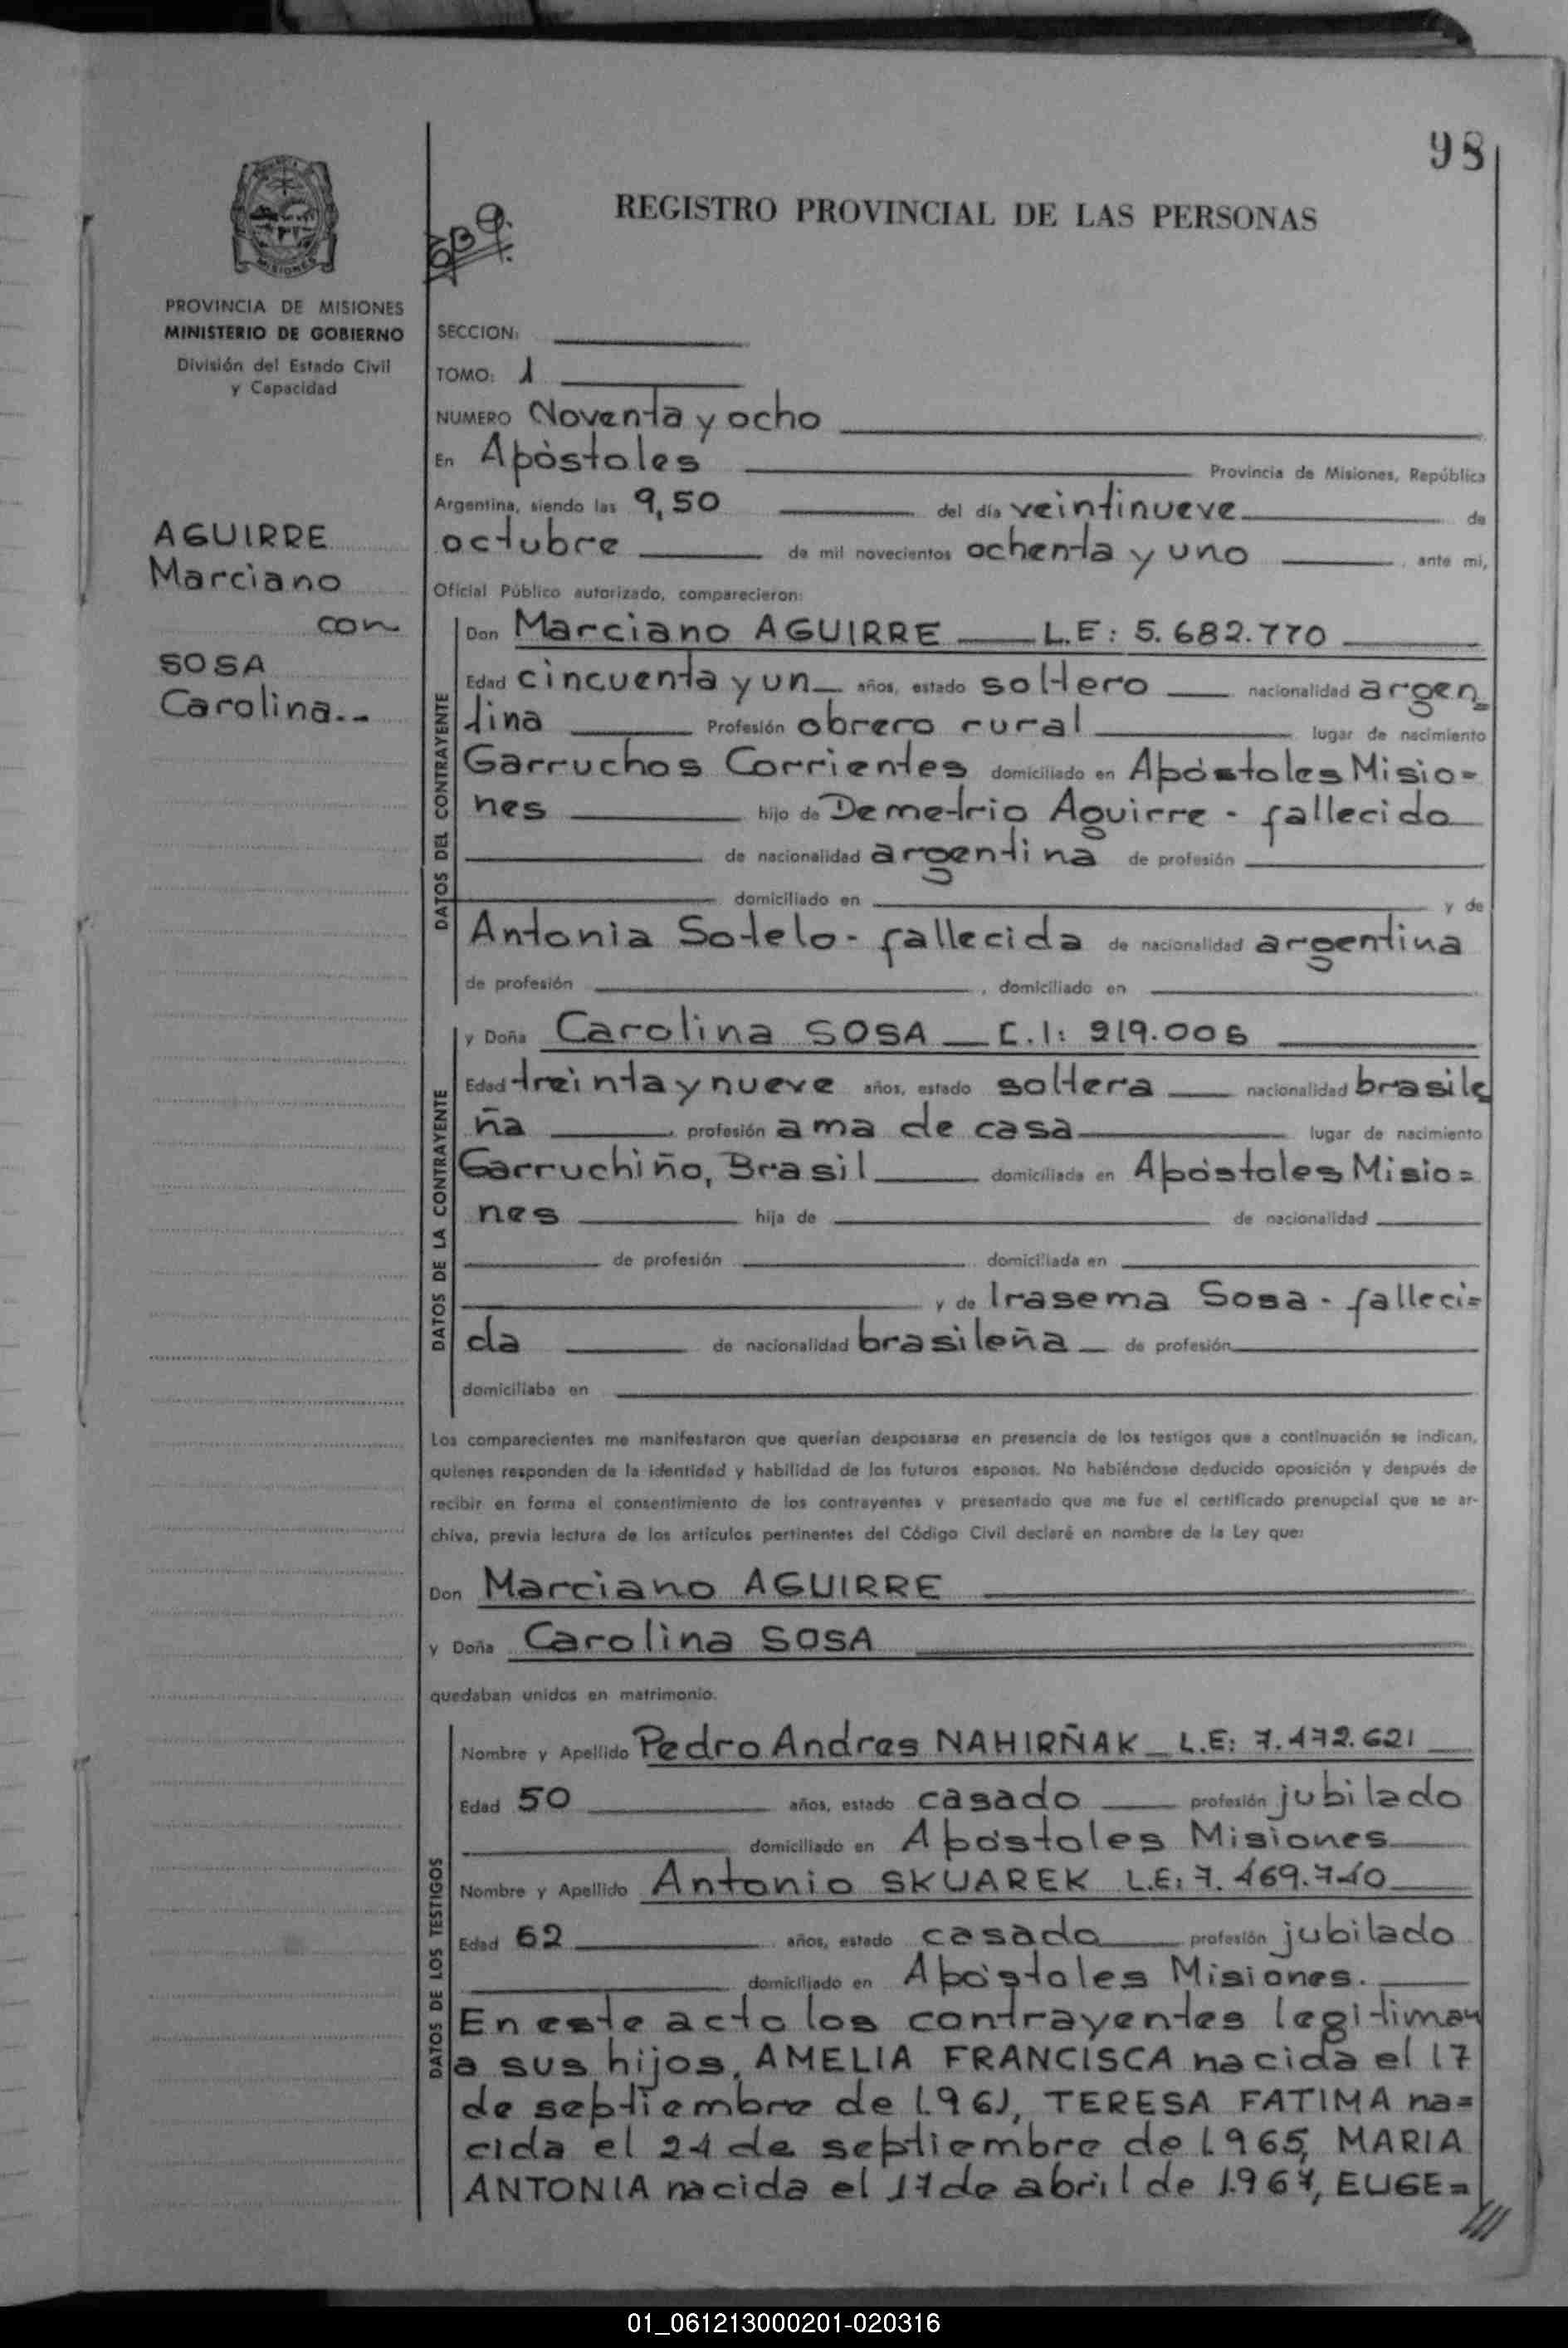 98
REGISTRO PROVINCIAL DE LAS PERSONAS
PROVINCIA DE MISIONES
MINISTERIO DE GOBIERNO
División del Estado Civil
y Capacidad
AGUIRRE
Marciano
con
SOSA
Carolina.--
SECCION:
TOMO: 1
NUMERO Noventa y ocho
En Apòstoles Provincia de Misiones, República
Argentina, siendo las 9,50 del día veintinueve de
octubre de mil novecientos ochenta y uno, ante mi,
Oficial Público autorizado, comparecieron:
DATOS DEL CONTRAYENTE
Don Marciano AGUIRRE L.E: 5.682.770
Edad cincuenta y un años, estado soltero nacionalidad argen_
tina Profesión obrero rural lugar de nacimiento
Garruchos Corrientes domiciliado en Apóstoles Misio=
nes hijo de Demetrio Aguirre - fallecido
de nacionalidad argentina de profesión
domiciliado en y de
Antonia Sotelo - fallecida de nacionalidad argentina
de profesión , domiciliado en
DATOS DE LA CONTRAYENTE
y Doña Carolina SOSA C.I: 219.006
Edad treinta y nueve años, estado soltera nacionalidad brasile
ña , profesión ama de casa lugar de nacimiento
Garruchiño, Brasil domiciliada en Apóstoles Misio=
nes hija de de nacionalidad
de profesión domiciliada en
y de Irasema Sosa - falleci=
da de nacionalidad brasileña de profesión
domiciliaba en
Los comparecientes me manifestaron que querían desposarse en presencia de los testigos que a continuación se indican,
quienes responden de la identidad y habilidad de los futuros esposos. No habiéndose deducido oposición y después de
recibir en forma el consentimiento de los contrayentes y presentado que me fue el certificado prenupcial que se ar-
chiva, previa lectura de los artículos pertinentes del Código Civil declaré en nombre de la Ley que:
Don Marciano AGUIRRE
y Doña Carolina SOSA
quedaban unidos en matrimonio.
DATOS DE LOS TESTIGOS
Nombre y Apellido Pedro Andres NAHIRÑAK L.E: 7.472.621
Edad 50 años, estado casado profesión jubilado
domiciliado en Apóstoles Misiones
Nombre y Apellido Antonio SKUAREK L.E: 7.469.740
Edad 62 años, estado casado profesión jubilado
domiciliado en Apóstoles Misiones.
En este acto los contrayentes legitiman
a sus hijos, AMELIA FRANCISCA nacida el 17
de septiembre de 1.961, TERESA FATIMA na=
cida el 24 de septiembre de 1.965, MARIA
ANTONIA nacida el 17 de abril de 1.967, EUGE=
///
01_061213000201-020316